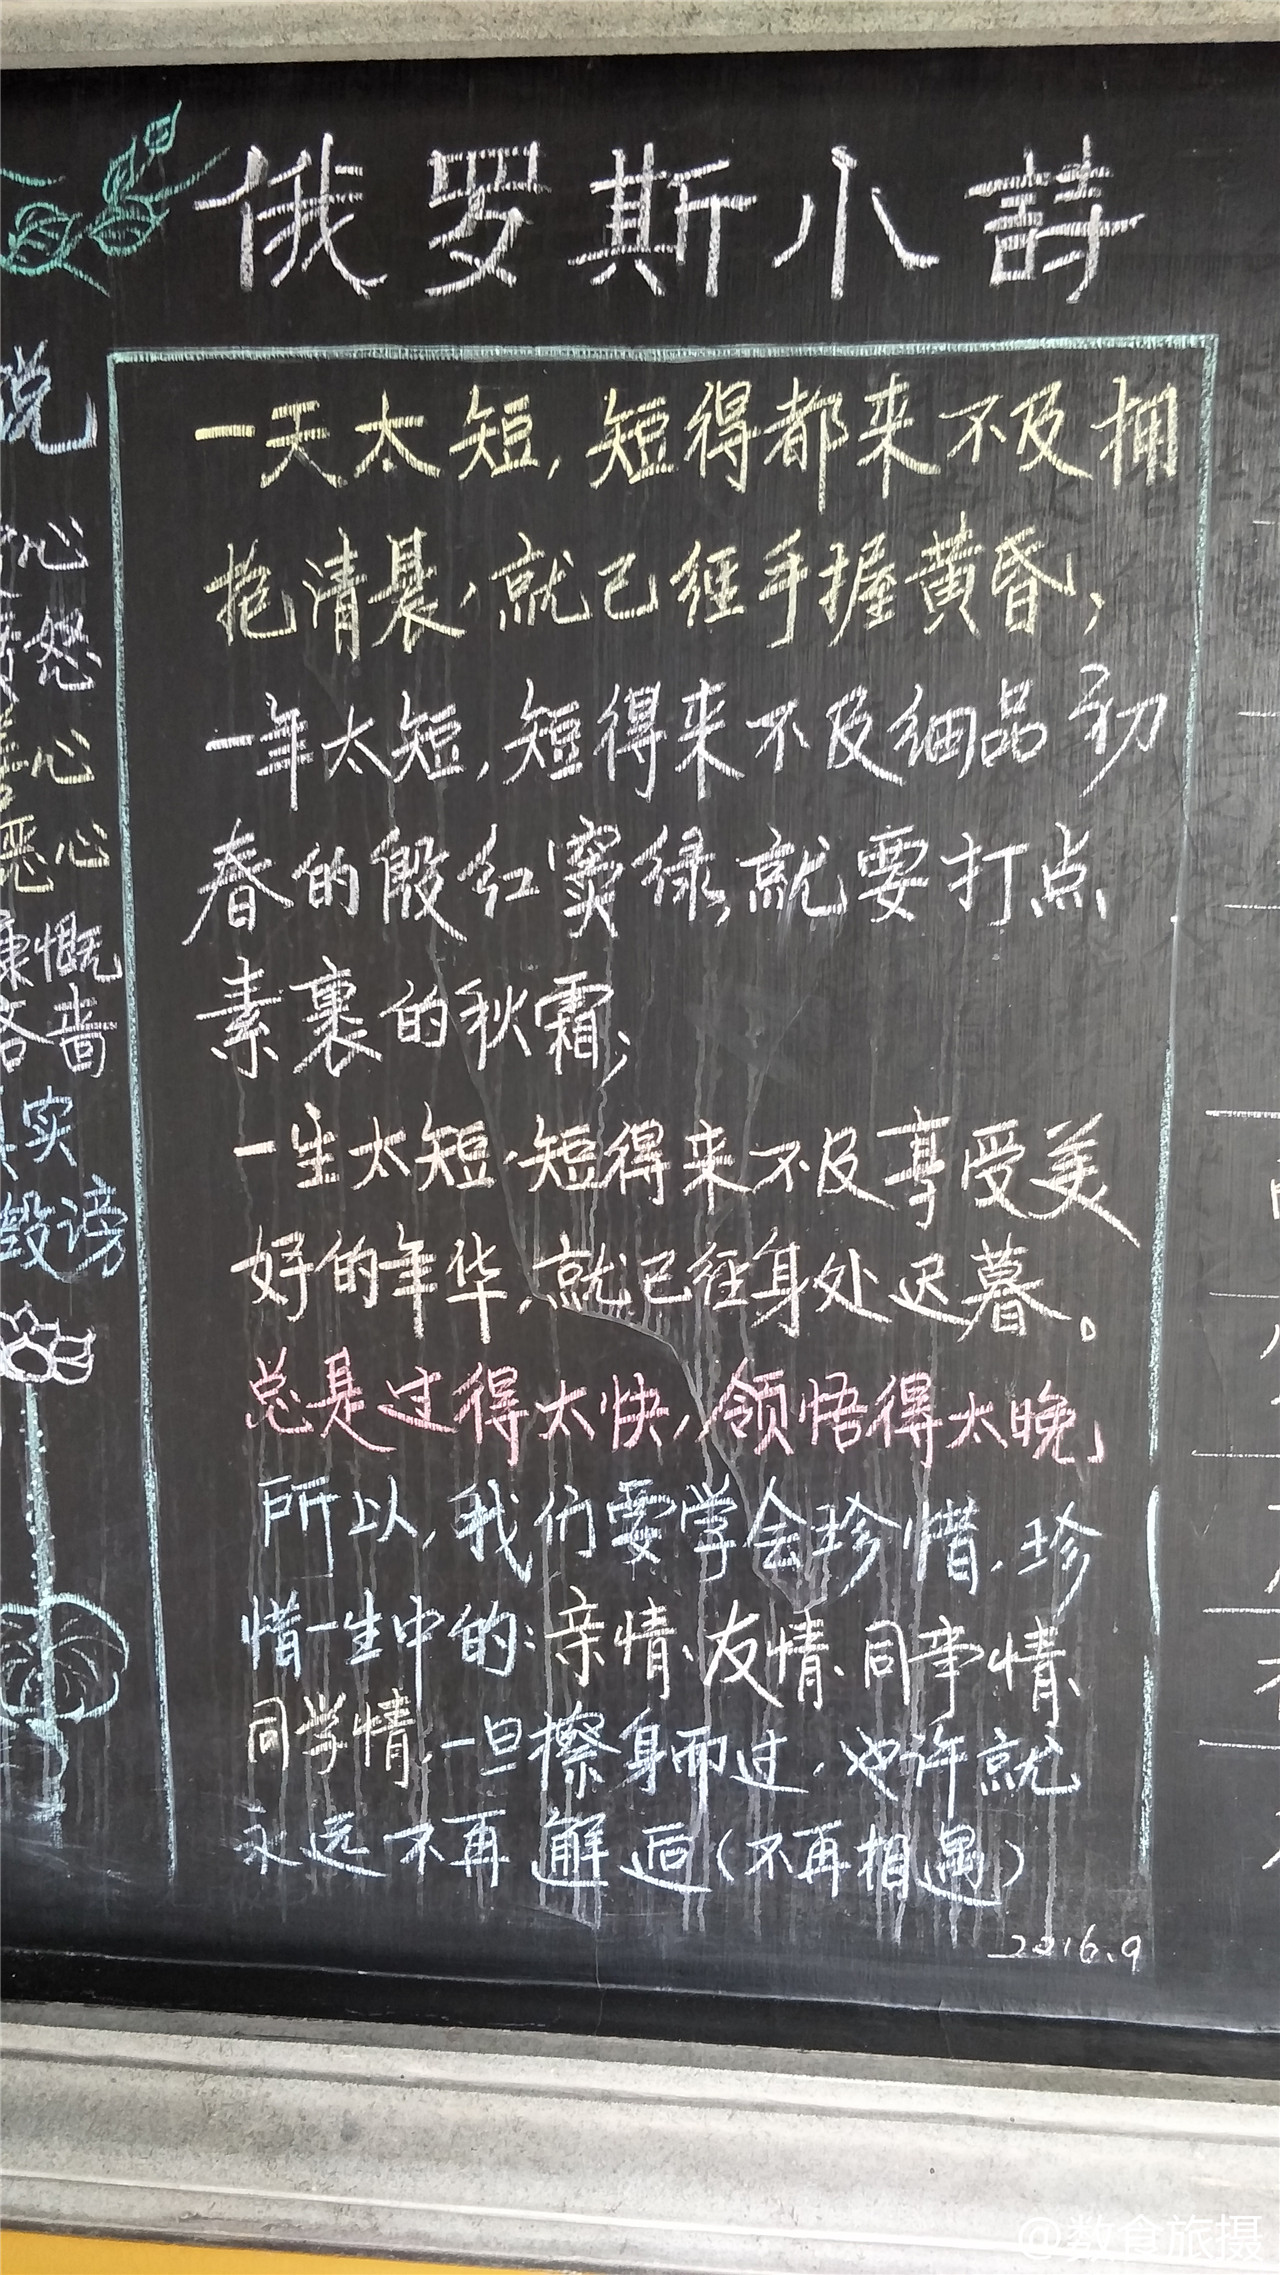 俄罗斯小詩
一天太短,短得都来不及拥
抱清晨,就已经手握黄昏,
一年太短,短得来不及细品初
春的殷红窦绿,就要打点
素裹的秋霜;
一生太短,短得来不及享受美
好的年华,就已经身处迟暮。
总是过得太快,领悟得太晚,
所以,我们要学会珍惜,珍
惜一生中的:亲情、友情、同事情、
同学情,一旦擦身而过,也许就
永远不再邂逅(不再相遇)
2016.9
说
心
怒
心
恶心
慷慨
吝啬
实
毁谤
@数食旅摄